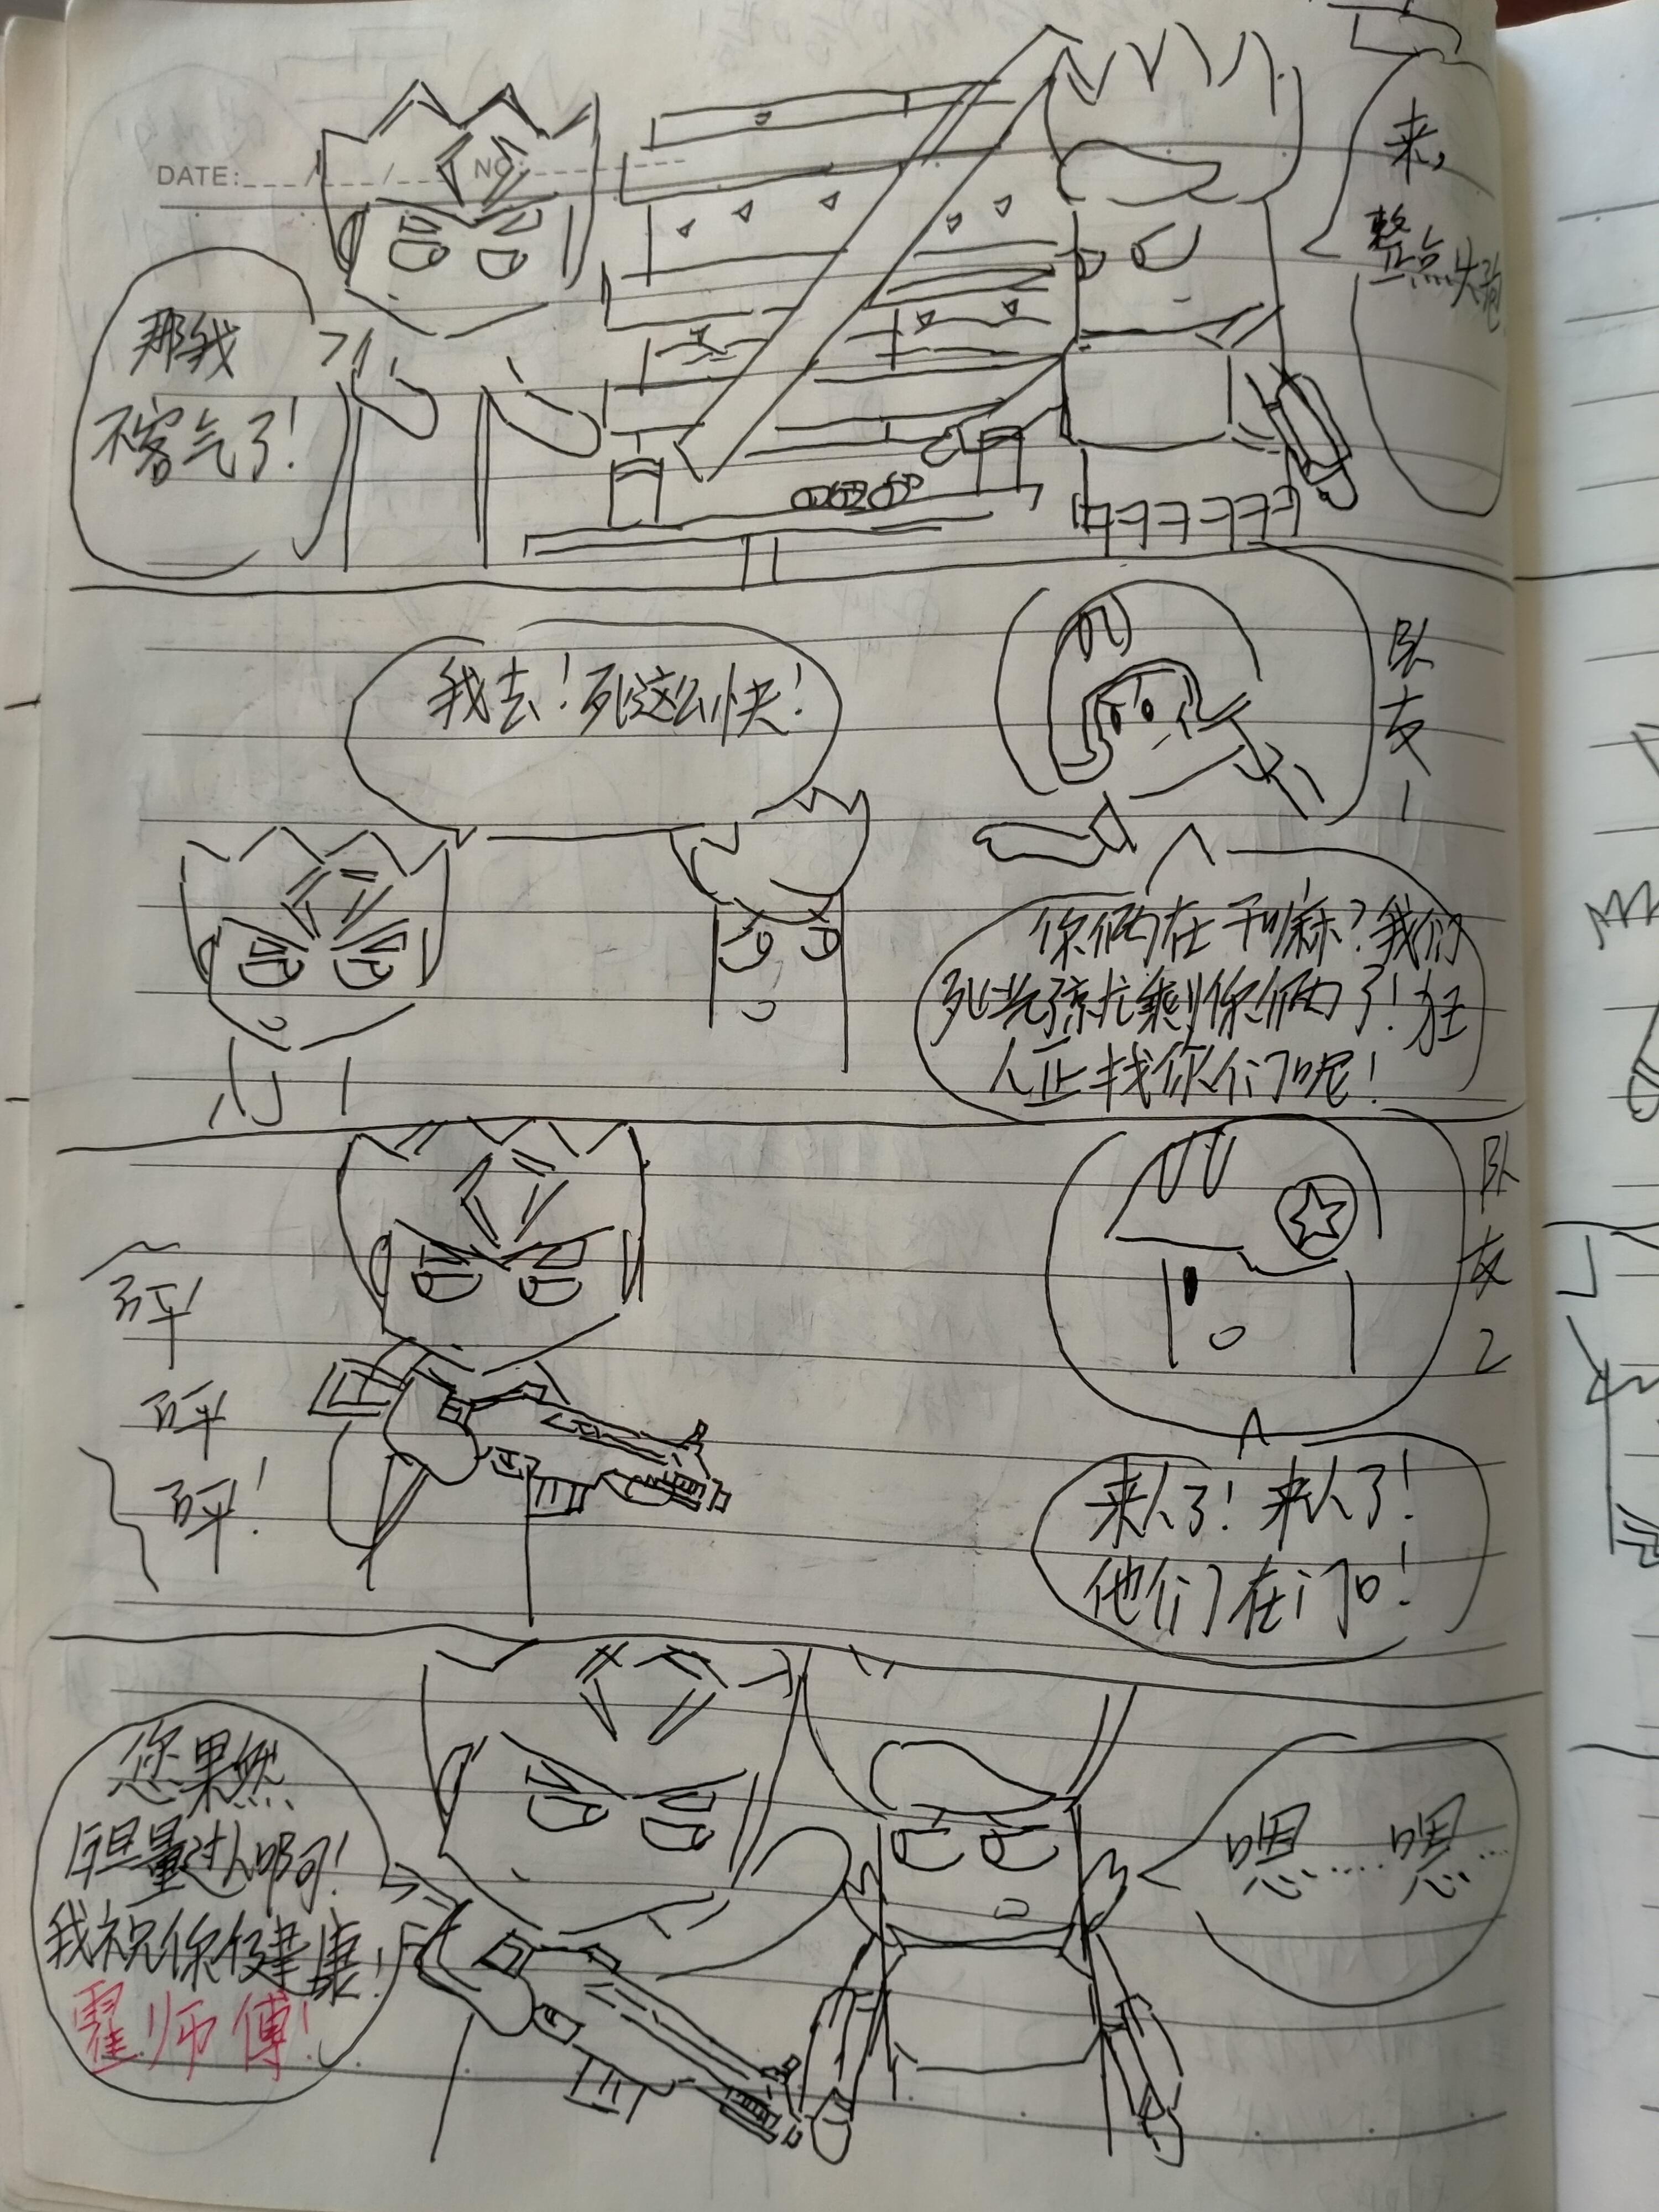 DATE: / / NO:
来,
整点头孢
那我
不客气了!
我去!死这么快!
队友1
你俩在干嘛?我们
死光了就剩你俩了!狂
人正找你们呢!
砰!
砰
砰!
队友2
来人了!来人了!
他们在门口!
您果然
胆量过人啊!
我祝你健康!
霍师傅!
嗯……嗯……